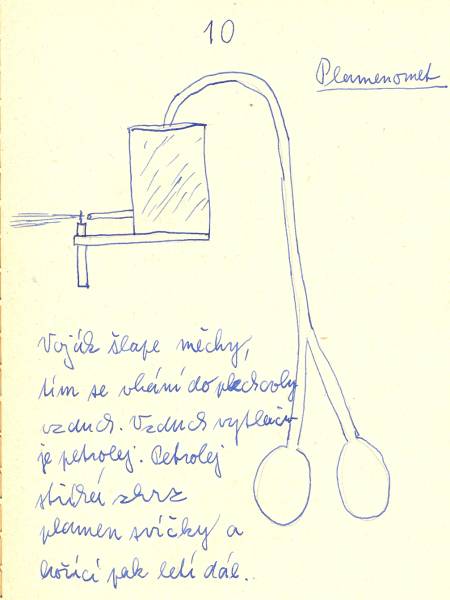 10
Plamenomet
Voják šlape měchy,
tím se vhání do plechovky
vzduch. Vzduch vytlaču-
je petrolej. Petrolej
stříká skrz
plamen svíčky a
hořící pak letí dál..